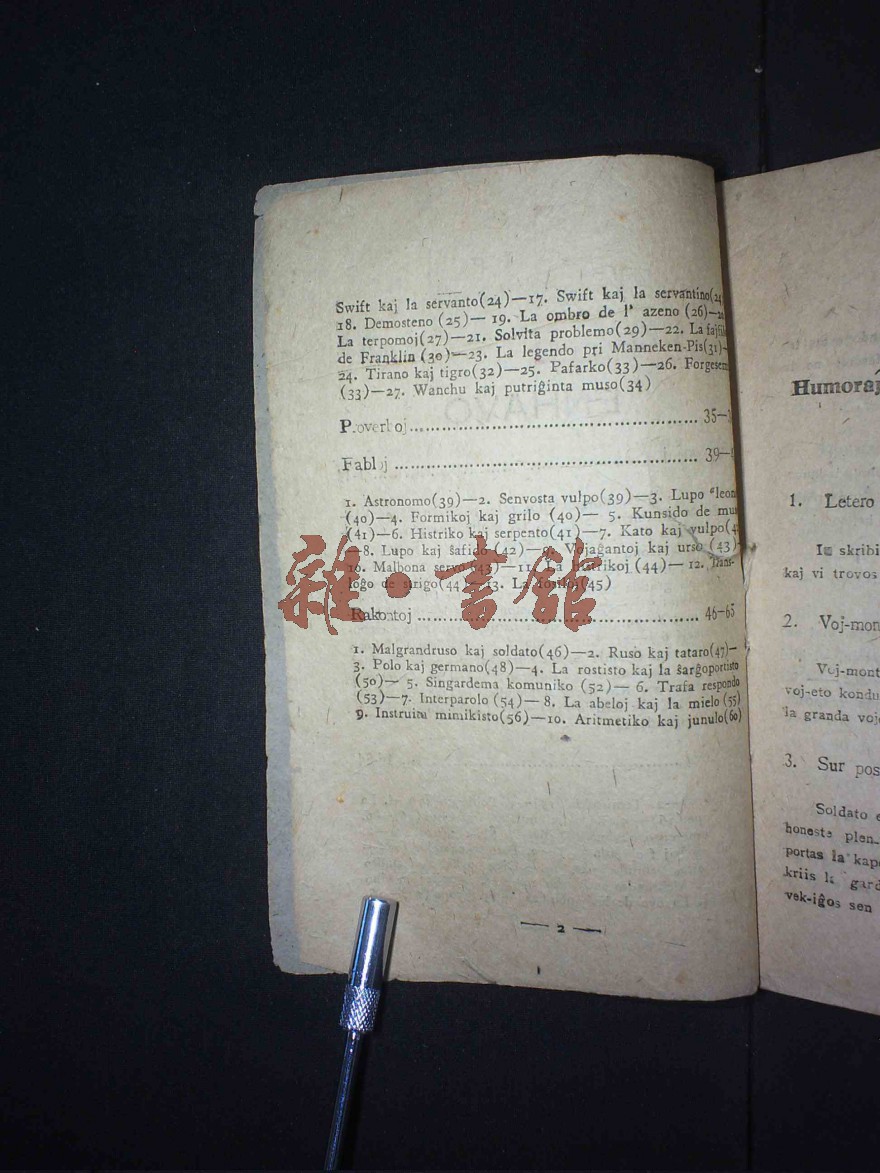 Swift kaj la servanto(24)—17. Swift kaj la servantino(24
18. Demosteno (25)— 19. La ombro de l' azeno (26)—
La terpomoj(27)—21. Solvita problemo(29)—22. La
de Franklin (30)—23. La legendo pri Manneken-Pis(31)—
24. Tirano kaj tigro(32)—25. Pafarko(33)—26.
(33)—27. Wanchu kaj putriĝinta muso(34)
Proverboj 35—
Fabloj 39—
1. Astronomo(39)—2. Senvosta vulpo(39)—3. Lupo
(40)—4. Formikoj kaj grilo (40)— 5. Kunsido de
(41)—6. Histriko kaj serpento(41)—7. Kato kaj vulpo(4
—8. Lupo kaj ŝafido (42)—9. Vojaĝantoj kaj urso (43)
10. Malbona servo (43)—11. La histrikoj (44)— 12.
de strigo(44)—13. La
雜·書館
Rakontoj 46—65
1. Malgrandruso kaj soldato(46)—2. Ruso kaj tataro(47)—
3. Polo kaj germano(48)—4. La rostisto kaj la ŝarĝoportisto
(50)— 5. Singardema komuniko (52)— 6. Trafa respondo
(53)—7. Interparolo (54)— 8. La abeloj kaj la mielo (55)
9. Instruita mimikisto(56)—10. Aritmetiko kaj junulo(60)
— 2 —
Humoraj
1. Letero
skribi
kaj vi trovos
2. Voj-mon
Voj-mont
voj-eto kondu
la granda voj
3. Sur pos
Soldato e
honeste plen-
portas la kap
kriis la gard
vek-iĝos sen